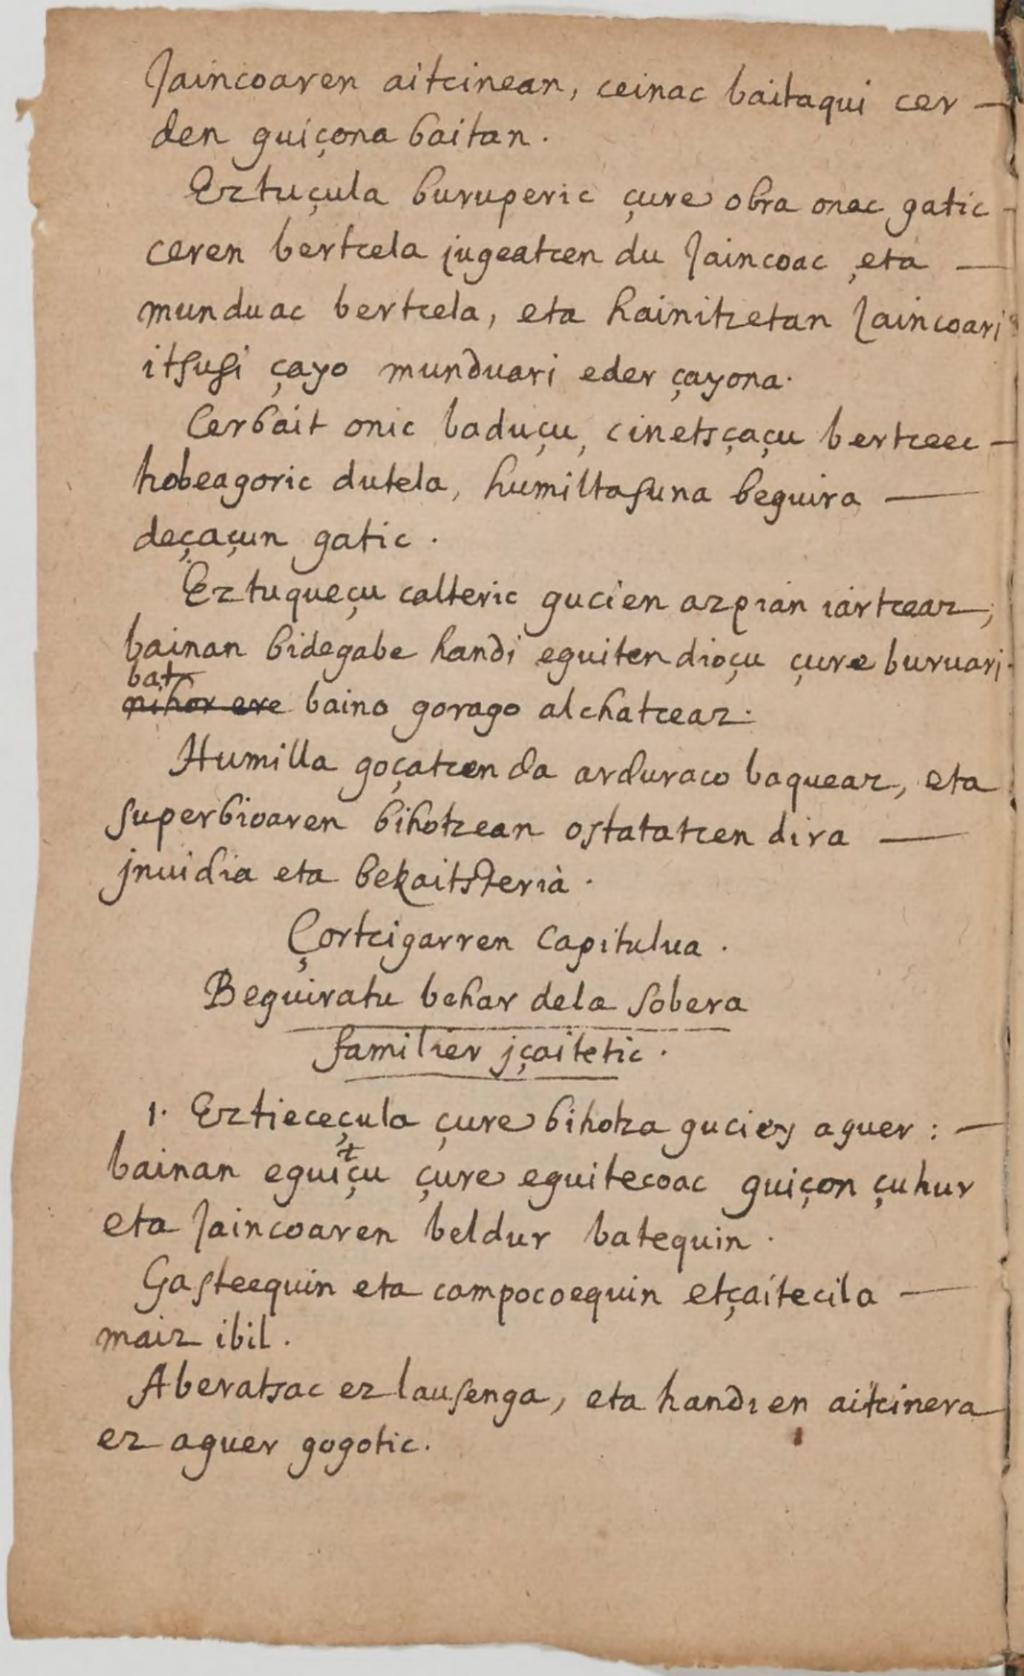 Jaincoaren aitcinean, ceinac baitaqui cer —
den guiçona baitan.
Eztuçula buruperic çure obra onac gatic -
ceren bertcela jugeatcen du Jaincoac eta —
munduac bertcela, eta hainitzetan Jaincoari
itsusi çayo munduari eder çayona.
Cerbait onic baduçu, cinetsçaçu bertceec —
hobeagoric dutela, humiltasuna beguira —
deçaçun gatic.
Eztuqueçu calteric gucien azpian iartceaz,
bainan bidegabe handi eguiten dioçu çure buruari
bat
nihor ere baino gorago alchatceaz.
Humilla goçatcen da arduraco baqueaz, eta
superbioaren bihotzean ostatatcen dira —
jnuidia eta bekaitsteria.
Çortcigarren Capitulua.
Beguiratu behar dela sobera
familier jçaitetic.
1. Eztieceçula çure bihotza guciey aguer: —
bainan eguitçu çure eguitecoac guiçon çuhur
eta Jaincoaren beldur batequin.
Gasteequin eta campocoequin etçaitecila —
maiz ibil.
Aberatsac ez lausenga, eta handien aitcinera
ez aguer gogotic.